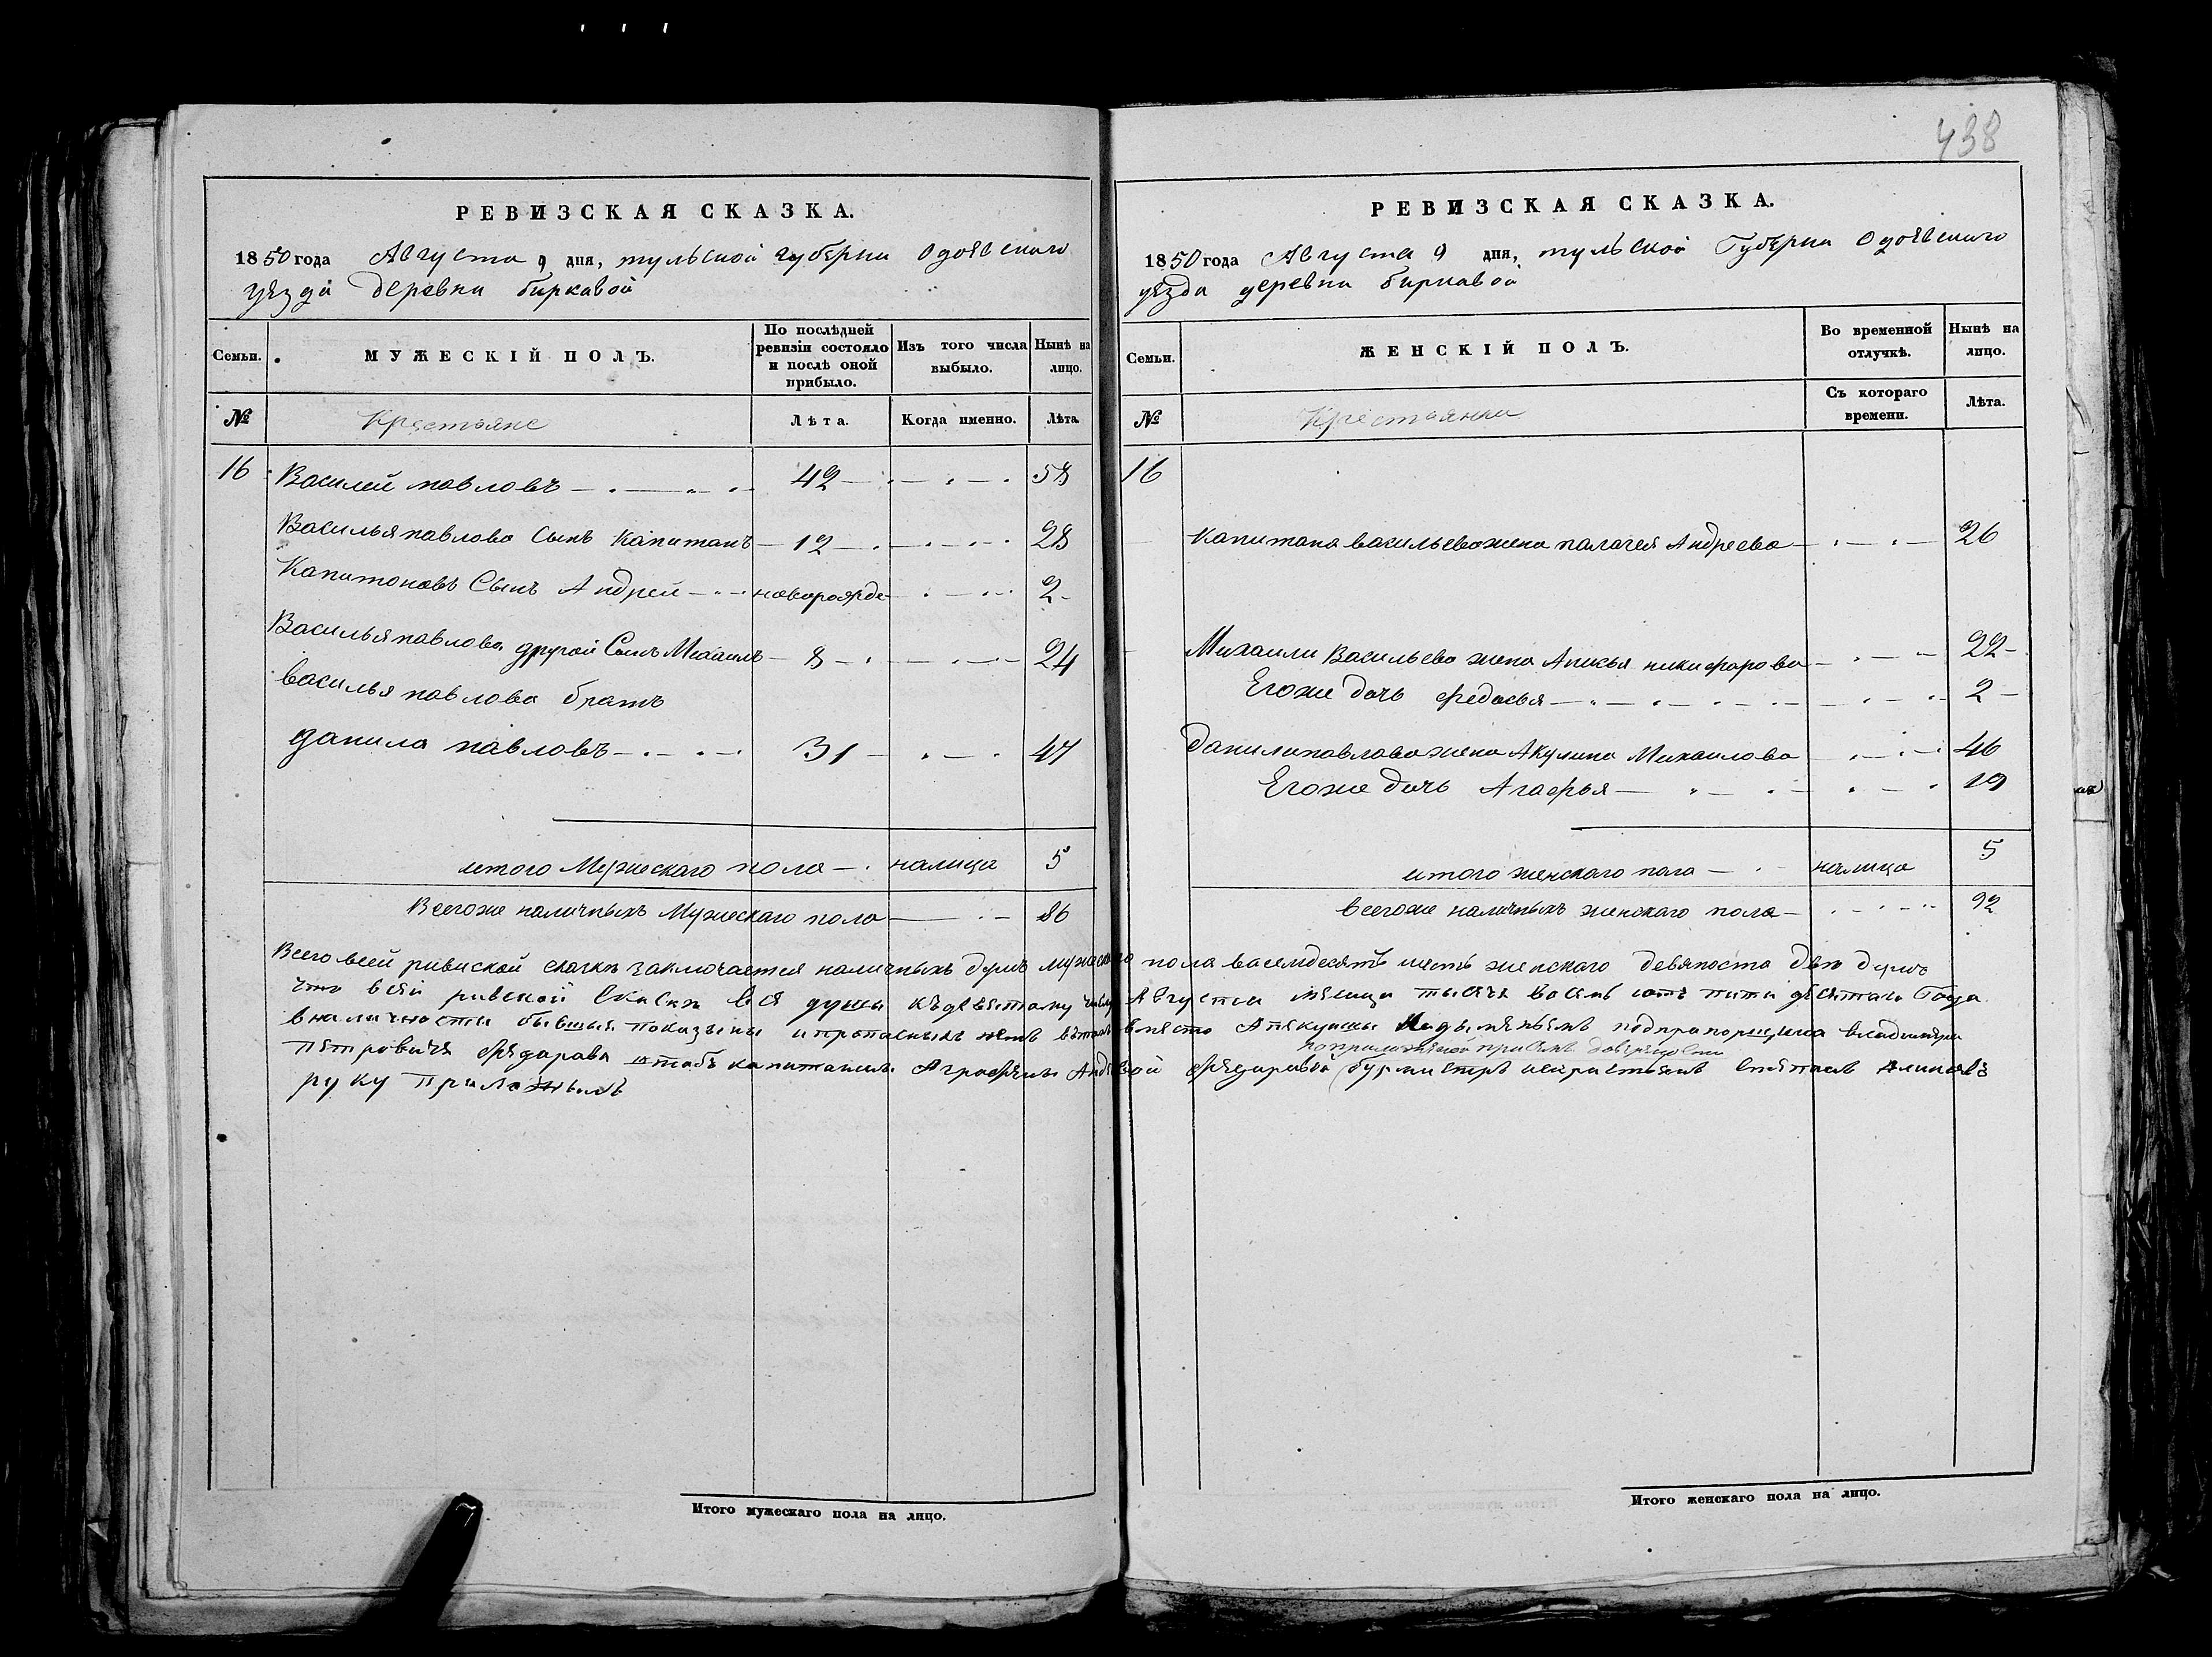 438
РЕВИЗСКАЯ СКАЗКА.
1850 года Августа 9 дня, тульской губерни Одоевскаго
уезда деревни биркавой
Семьи.
МУЖЕСКІЙ ПОЛЪ.
По послѣдней ревизіи состояло и послѣ оной прибыло.
Изъ того числа выбыло.
Нынѣ на лицо.
№
Крестьяне
Лѣта.
Когда именно.
Лѣта.
16 Василей павловъ 42 58
Василья павлова Сынъ Капитанъ 12 28
Капитоновъ Сынъ Андрей новорожде 2
Василья павлова другой Сынъ Михаилъ 8 24
василья павлова братъ
данила павловъ 31 47
итого Мужескаго пола налица 5
Всегоже наличныхъ Мужескаго пола 86
РЕВИЗСКАЯ СКАЗКА.
1850 года Августа 9 дня, тульской Губерни Одоевскаго
уезда деревни биркавой
Семьи.
ЖЕНСКІЙ ПОЛЪ.
Во временной отлучкѣ.
Нынѣ на лицо.
№
Крестьянки
Съ котораго времени.
Лѣта.
16
Капитана васильева жена палагея Андреева 26
Михаили Васильева жена Анисья никифорова 22
Егоже дочь федосья 2
данили павлова жена Акулина Михаилова 46
Егоже дочь Агафья 19
итого женскаго пола налица 5
всегоже наличныхъ женскаго пола 92
Всего всей ривиской скаски заключается наличныхъ душъ мужескаго пола васемдесятъ шесть женскаго девяноста две душъ
что всей ривской Скаски все душы къ девятому числу Августа месяца тысеча восемь сотъ пяти десятаго Года
вналичности бывшыя показаны и вместо подпрапорщика владимера
петровича федарава штабъ капитаншы Аграфены федаравой
попрыложеной
бурмистръ
руку приложылъ
Итого мужескаго пола на лицо.
Итого женскаго пола на лицо.